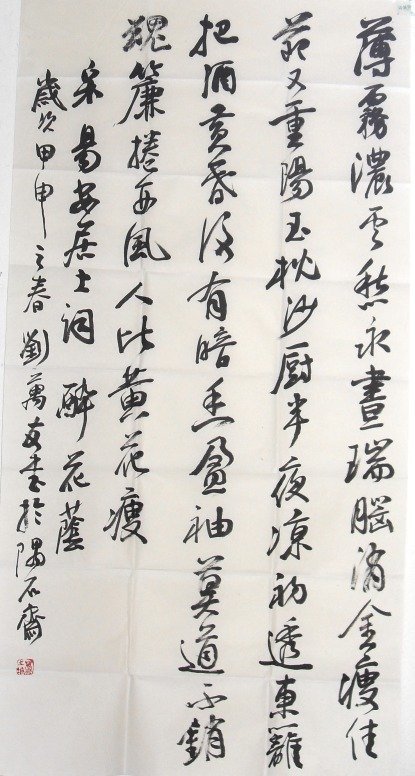 薄霧濃云愁永晝瑞腦消金瘦佳
節又重陽玉枕沙厨半夜凉初透東籬
把酒黃昏後有暗香盈袖莫道不銷
魂簾捲西風人比黃花瘦
采易安居士詞 醉花蔭
歲次甲申之春劉萬友書於隅石齋